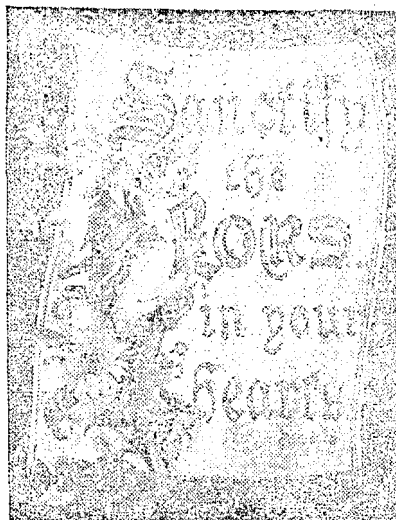 Sanctify
the
LORD
in your
hearts